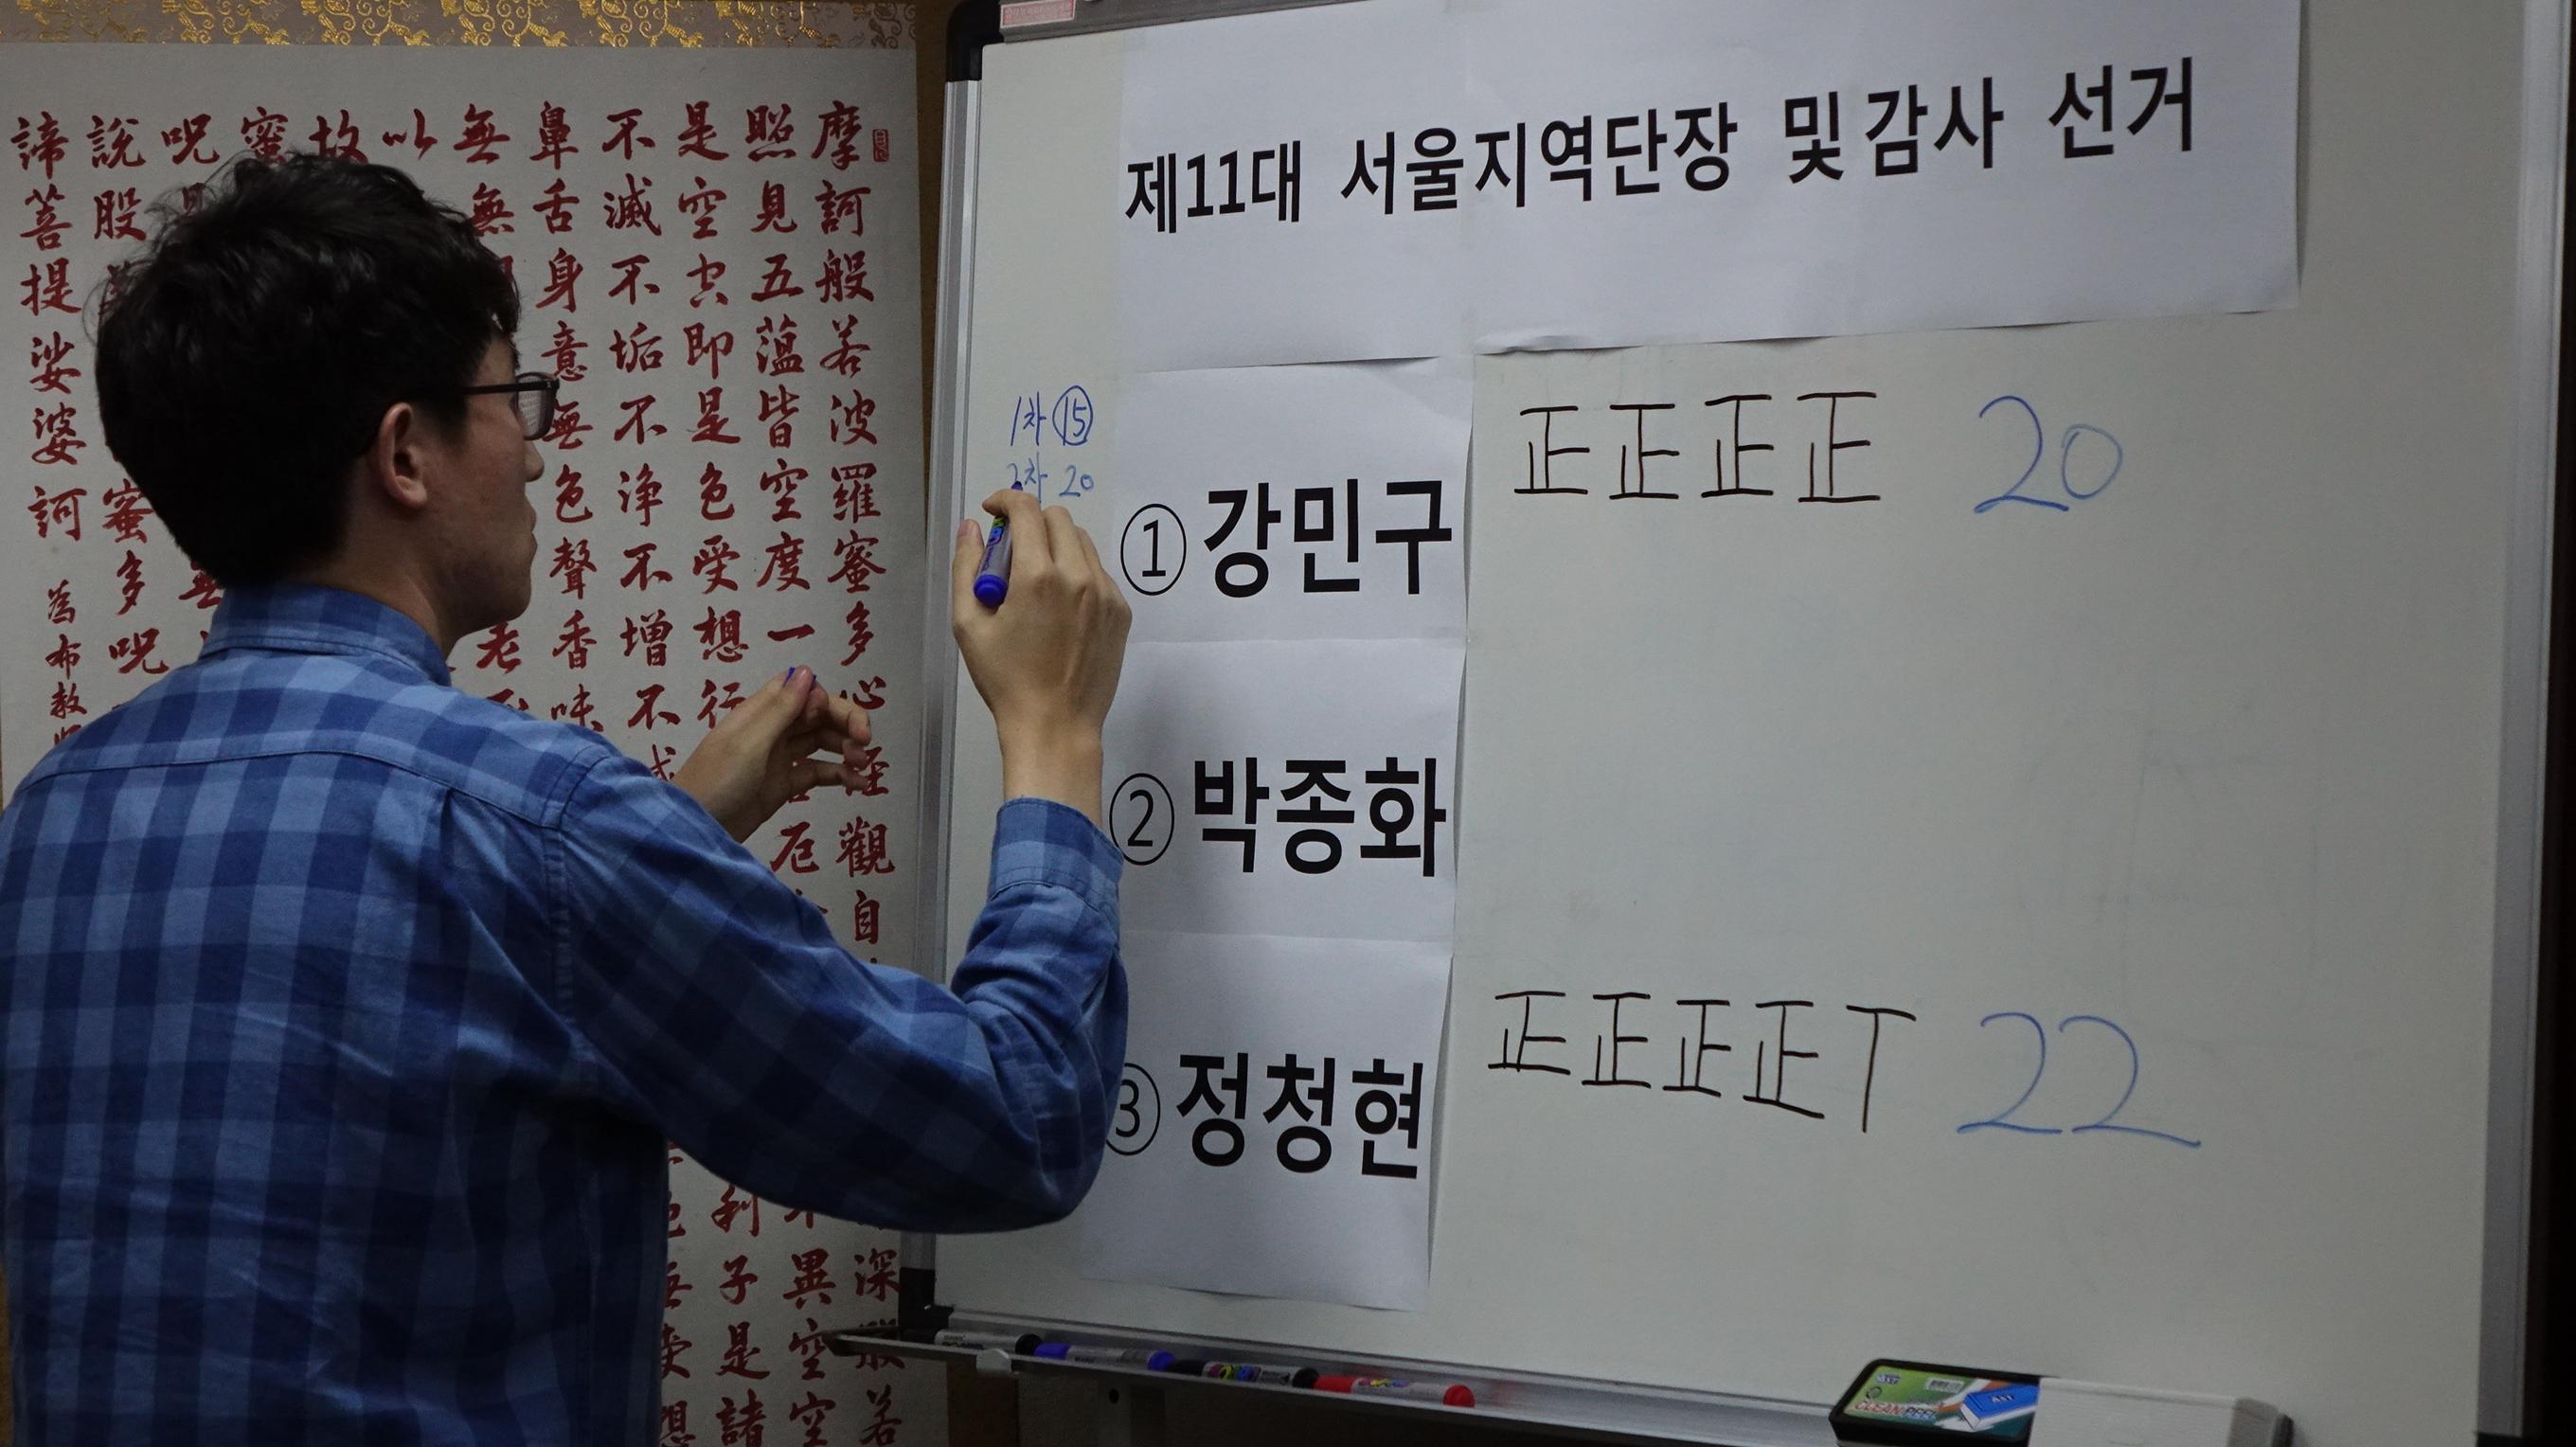 제11대 서울지역단장 및 감사 선거
1차 ⑮
2차 20
① 강민구
正正正正 20
② 박종화
③ 정청현
正正正正T 22
摩訶般若波羅蜜多心經觀自
深般若
照見五蘊皆空度一
厄
異空空
是空空即是色受想行
利子是諸
不滅不垢不淨不增不
鼻舌身意無色聲香味
無無
老
以
故
蜜
呪
說般
蜜多呪
諦菩提娑婆訶
為布教